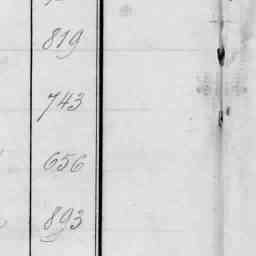 819
743
656
893